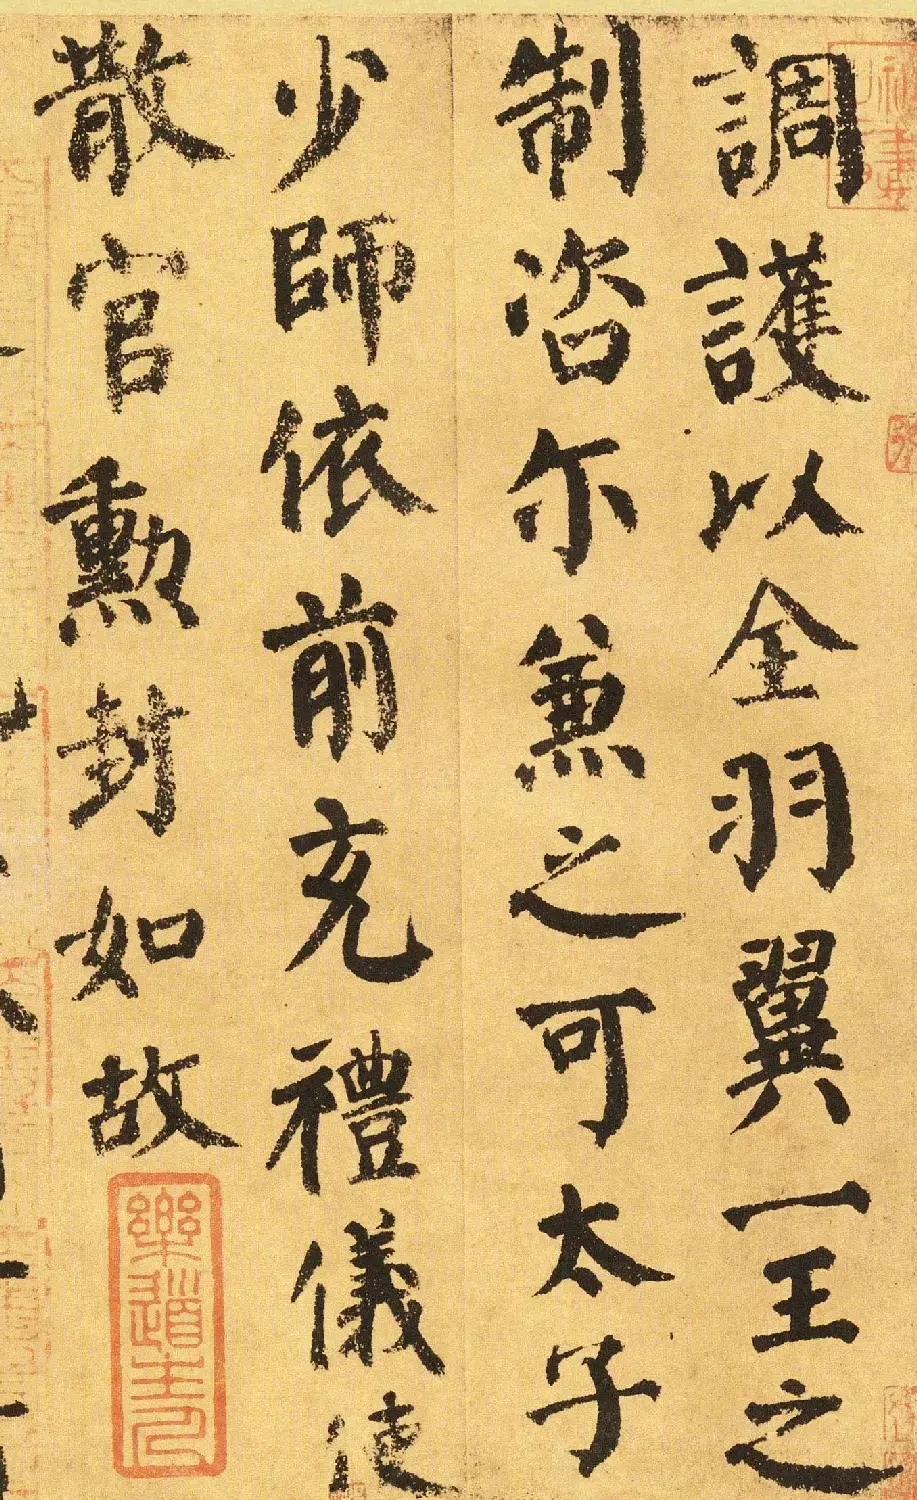 調護以全羽翼一王之
制咨尒兼之可太子
少師依前充禮儀使
散官勲封如故
樂道主人